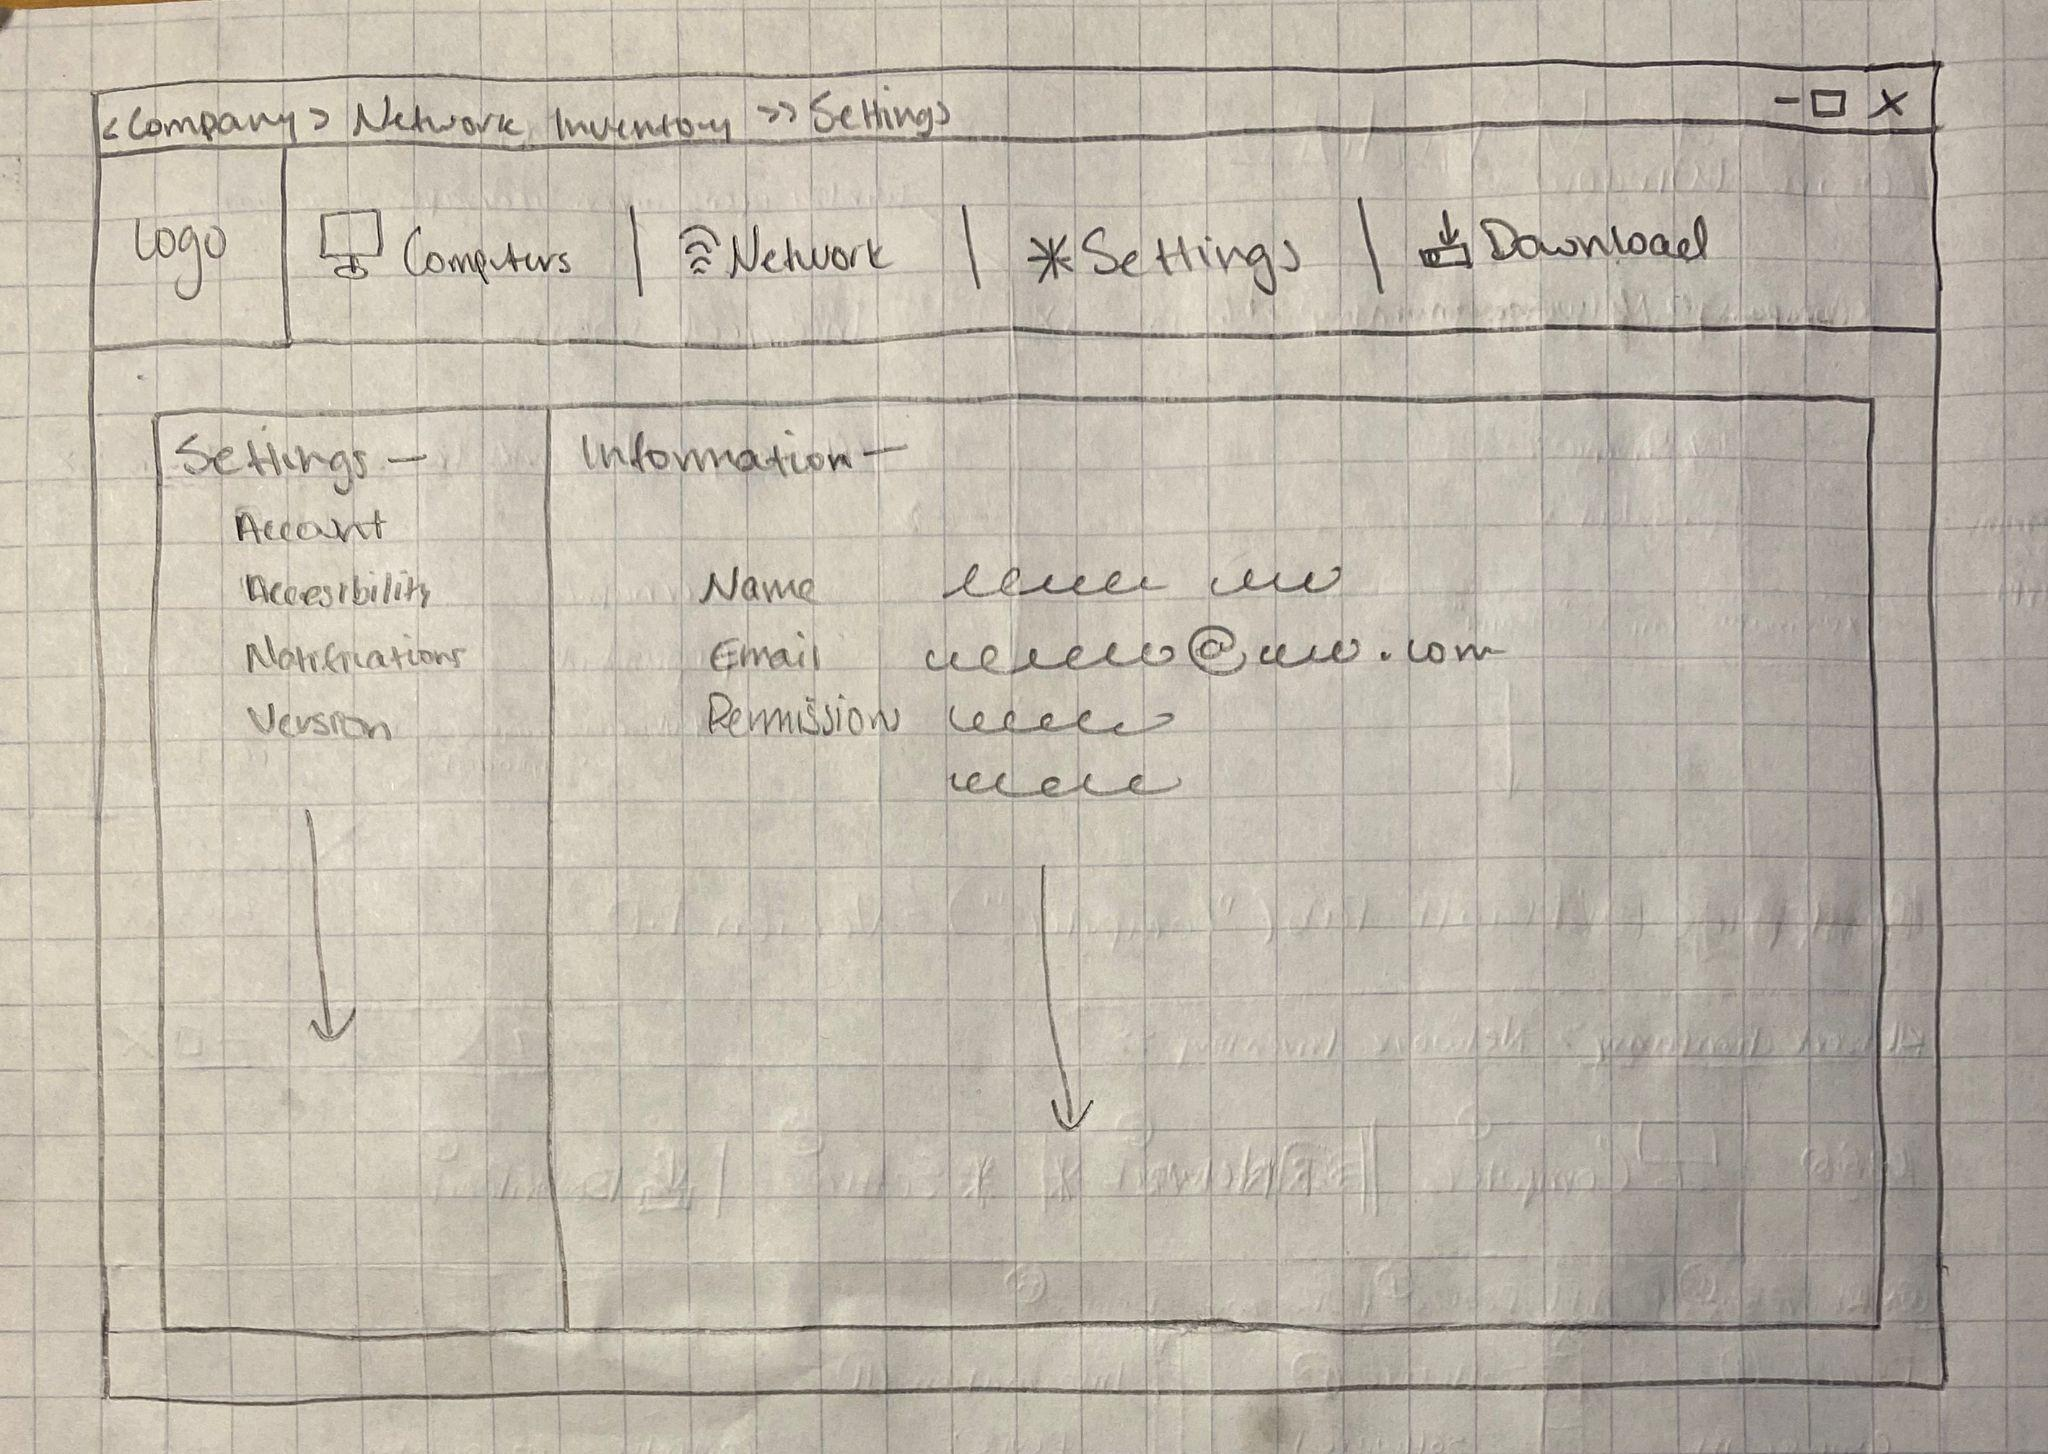 <Company> Network Inventory >> Settings - □ X
Logo
Computers | Network | Settings | Download
Settings —
Account
Accesibility
Notifications
Version
Information —
Name
Email @ .com
Permission